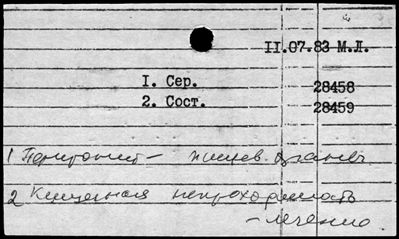 II.07.83 М.Л.
I. Сер. 28458
2. Сост. 28459
1 Перитонит –
2 Кишечная непроходимость
– лечение